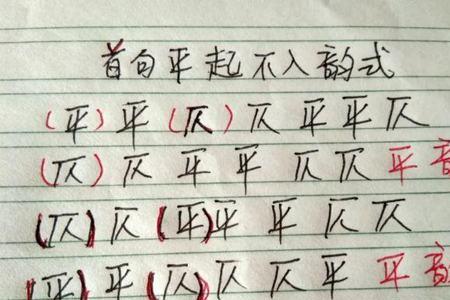 首句平起不入韵式
(平)平(仄)仄平平仄
(仄)仄平平仄仄平
(仄)仄(平)平平仄仄
(平)平(仄)仄仄平平